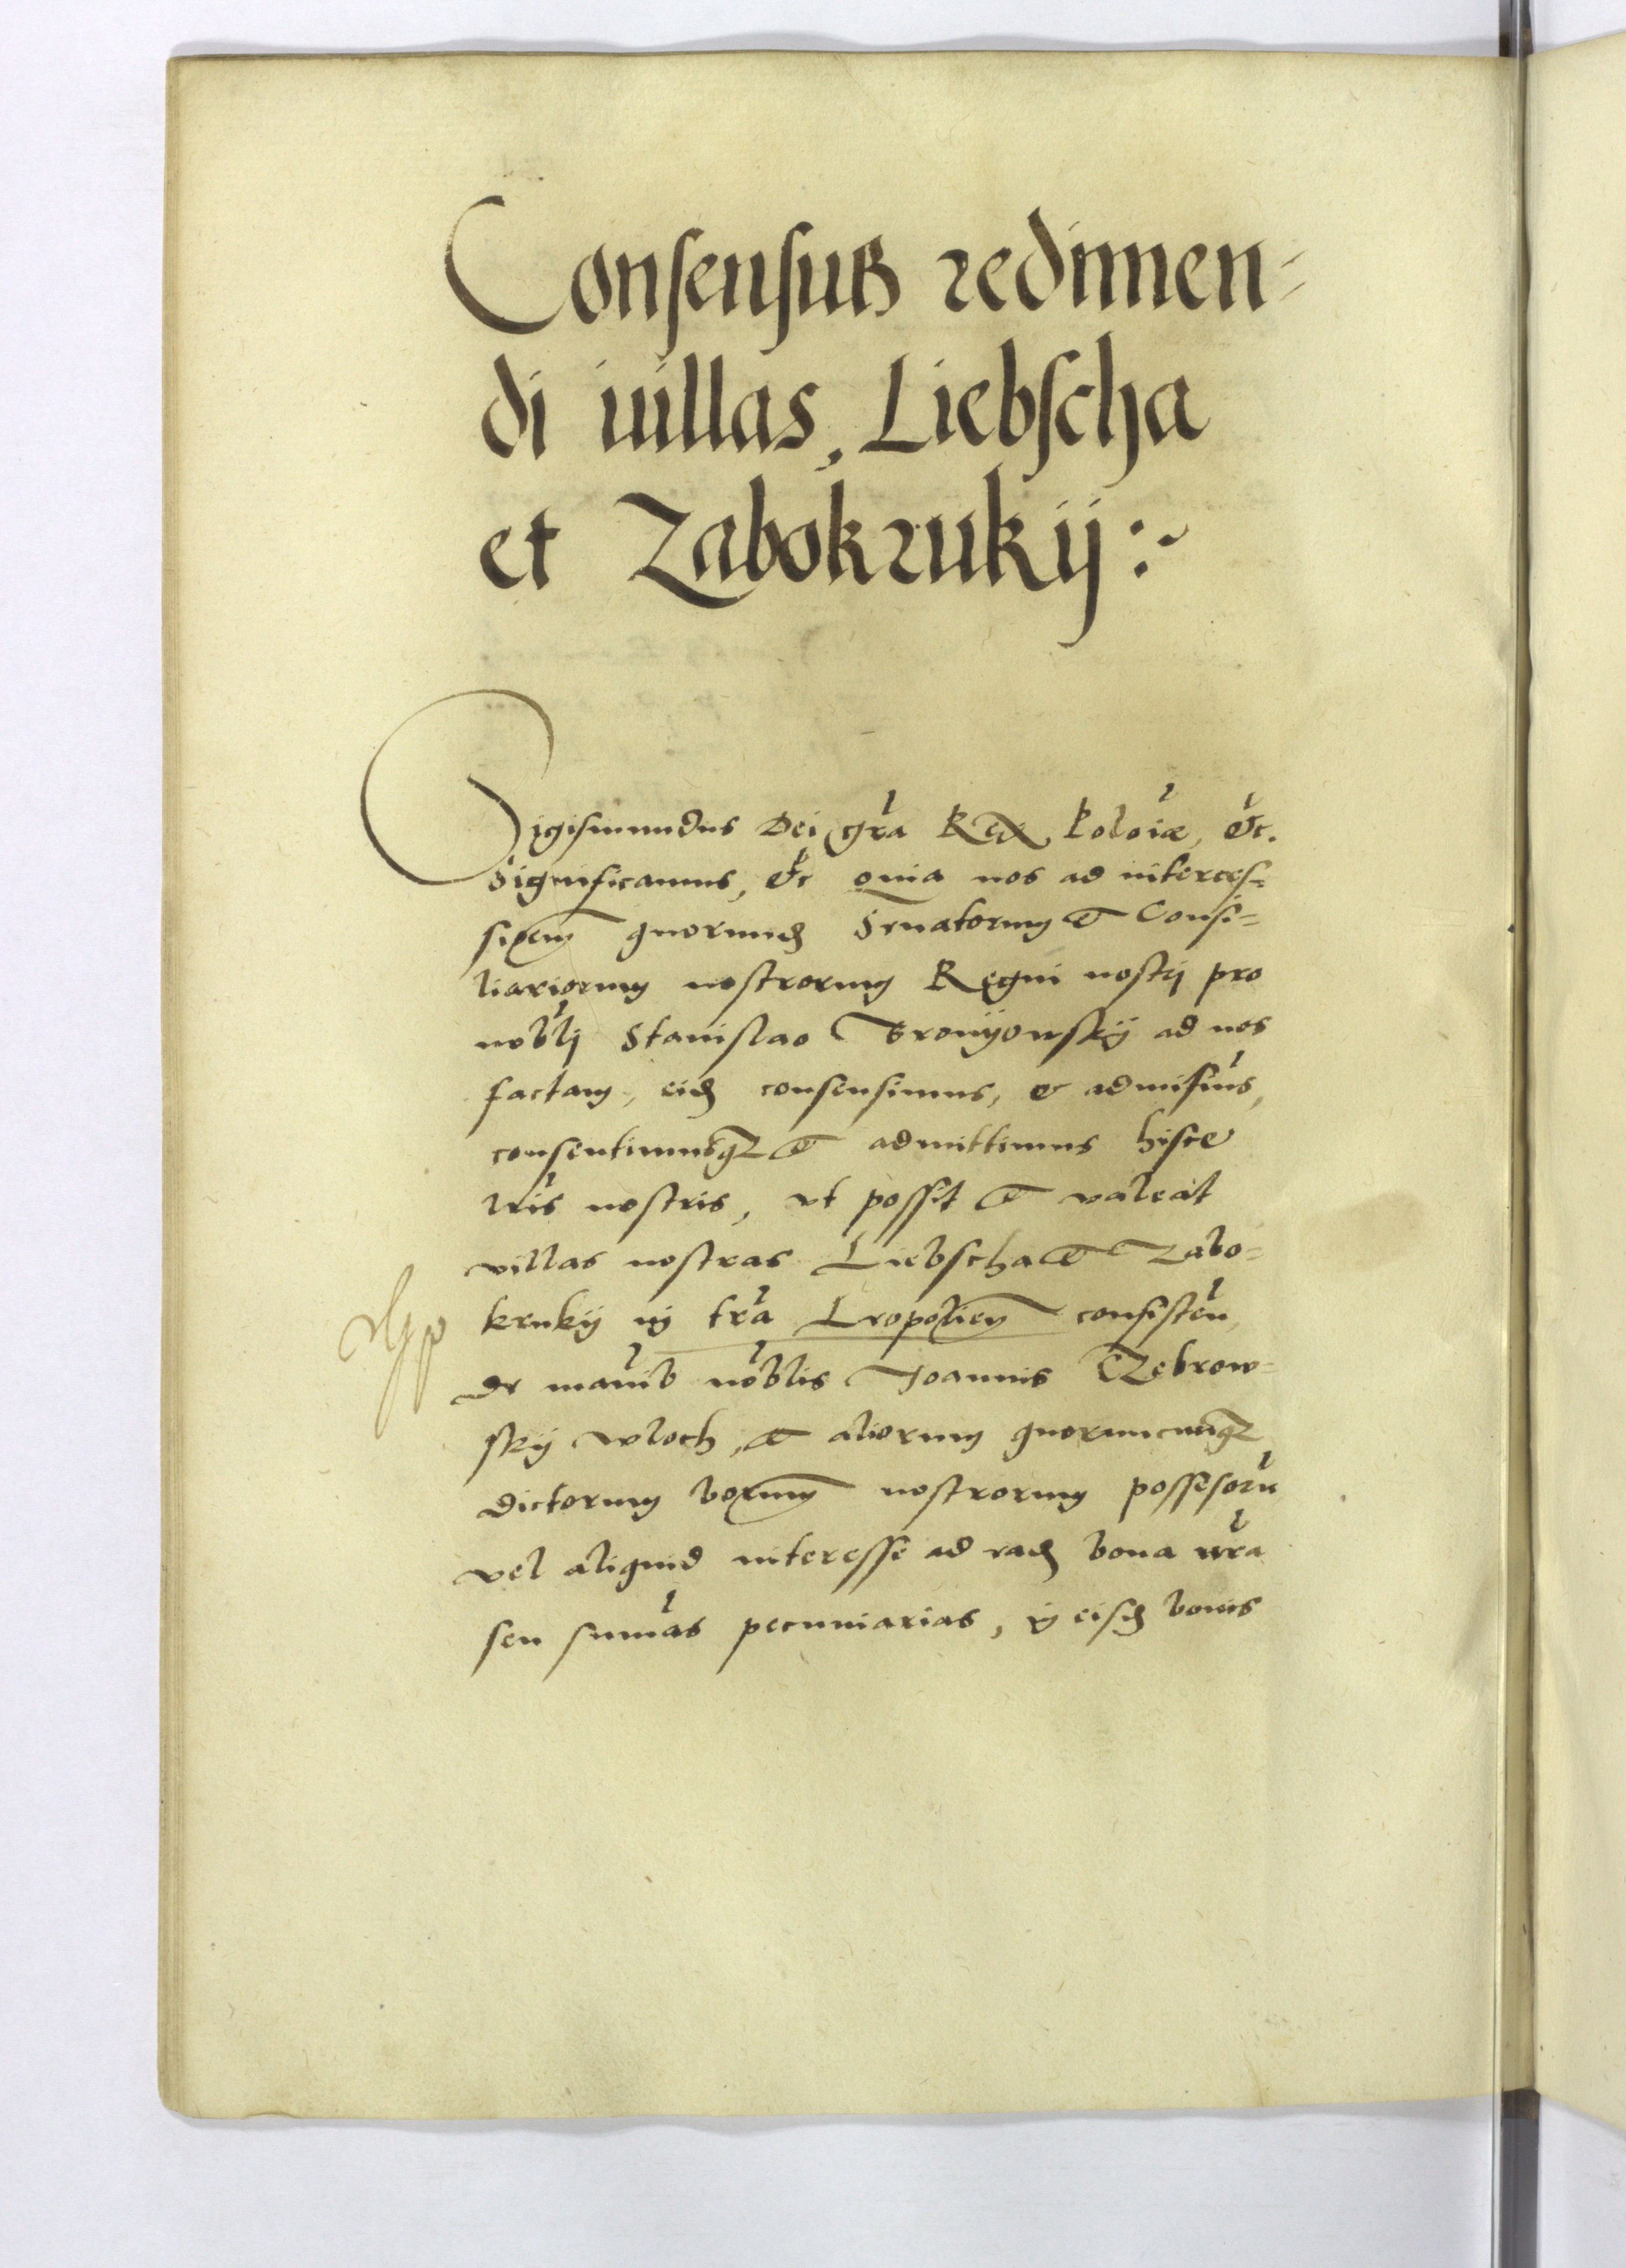 Consensus redimen-
di villas, Liebscha
et Zabokrukij:~
Sigismundus Dei gr̃a Rex Polõiæ, &c̃.
Significamus, &c̃ quia nos ad interces=
sioẽm quorund̃ Senatorum et Consi=
liariorum nostrorum Regni nostrj pro
nob̃lj Stanislao Bronÿowskÿ ad nos
factam, eid̃ consensimus, & admisim̃us,
consentimusq3 et admittimus hisce
lr̃is nostris, vt possit et valeat
villas nostras Liebscha et Zabo=
krukÿ in tr̃a Leopolieñ consisteñ
de mañib nob̃lis Joannis Czebrow=
skÿ wloch, et aliorum quorumcunq3
dictorum boorum̃ nostrorum possesorũ
vel aliquid interesse ad ead̃ bona nr̃a
seu sum̃as pecuniarias, in eisd̃ bonis